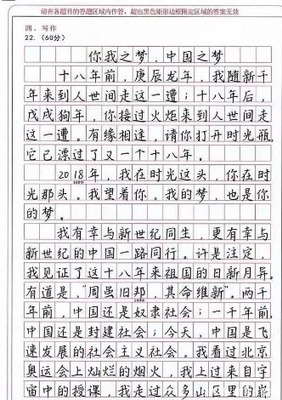 请在各题目的答题区域内作答，超出黑色矩形边框限定区域的答案无效
四、写作
22.（60分）
你我之梦，中国之梦
十八年前，庚辰龙年，我随新千
年来到人世间走这一遭；十八年后，
戊戌狗年，你接过火炬来到人世间走
这一遭。有缘相逢，请你打开时光瓶，
它已漂过了又一个十八年。
2018年，我在时光这头，你在时
光那头。我望着你。我的梦，也是你
的梦。
我有幸与新世纪同生，更有幸与
新世纪的中国一路同行。许是注定，
我见证了这十八年来祖国的日新月异。
有道是，“周虽旧邦，其命维新”。两千
年前，中国还是奴隶社会；一千年前，
中国还是封建社会；今天，中国是飞
速发展的社会主义社会。我看过北京
奥运会上灿烂的烟火，我上过来自宇
宙中的授课，我走过众多山区里的崭